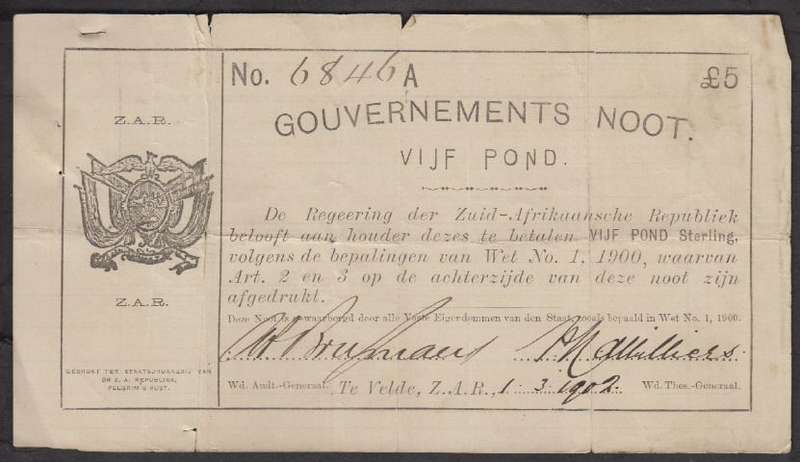 No. 6846 A £5
GOUVERNEMENTS NOOT.
VIJF POND.
Z.A.R.
De Regeering der Zuid-Afrikaansche Republiek
belooft aan houder dezes te betalen VIJF POND Sterling,
volgens de bepalingen van Wet No. 1, 1900, waarvan
Art. 2 en 3 op de achterzijde van deze noot zijn
afgedrukt.
Z.A.R.
Deze Noot is gewaarborgd door alle Vaste Eigendommen van den Staat, zooals bepaald in Wet No. 1, 1900.
GEDRUKT TER STAATSDRUKKERIJ VAN
DE Z. A. REPUBLIEK,
PELGRIM'S RUST.
Wd. Audt.-Generaal. Te Velde, Z.A.R., 1.3.1902. Wd. Thes.-Generaal.